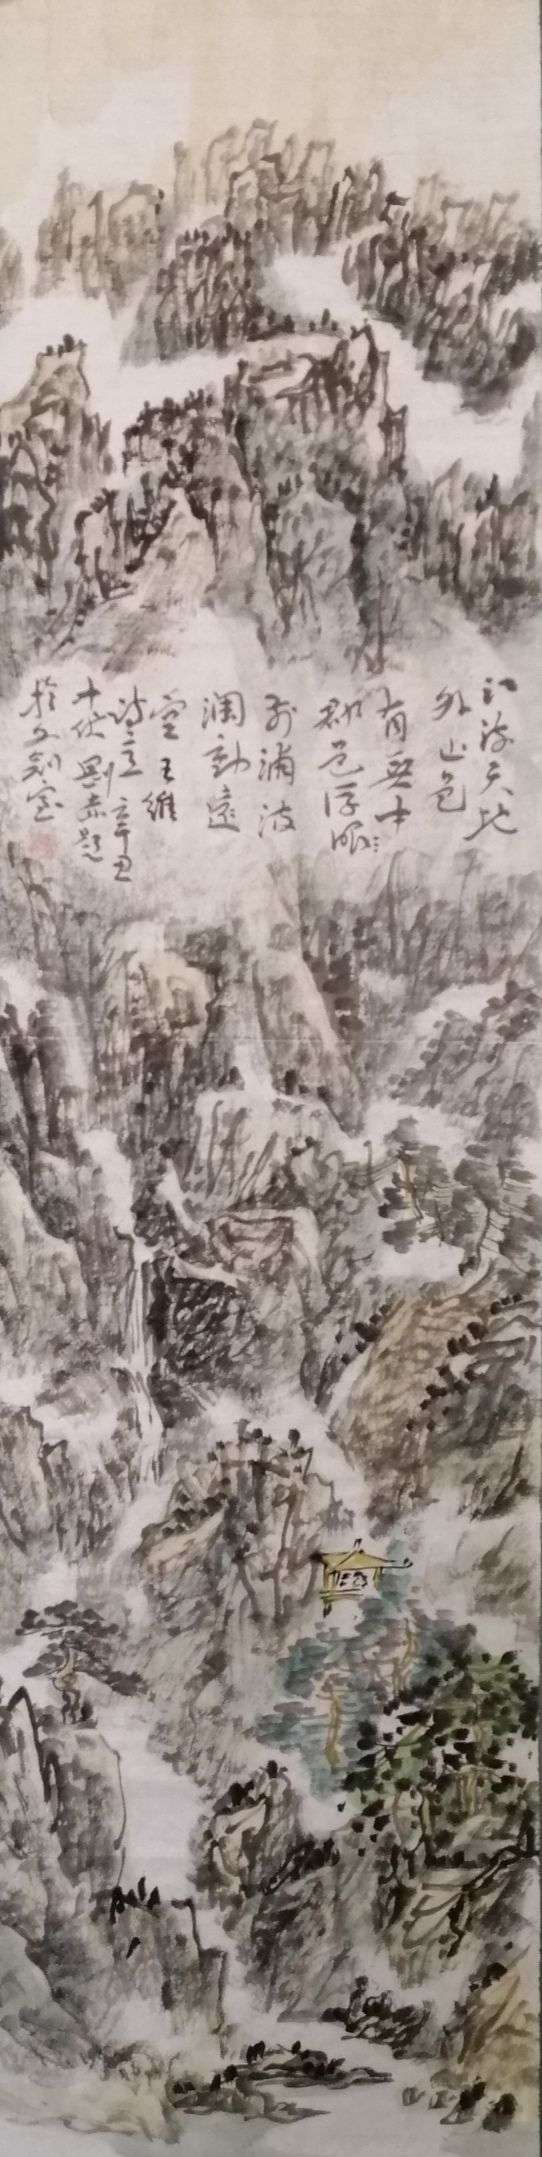 江流天地
外山色
有無中
郡邑浮眼
前浦波
瀾動遠
空 王維
詩意 辛丑
中伏劉題
於室